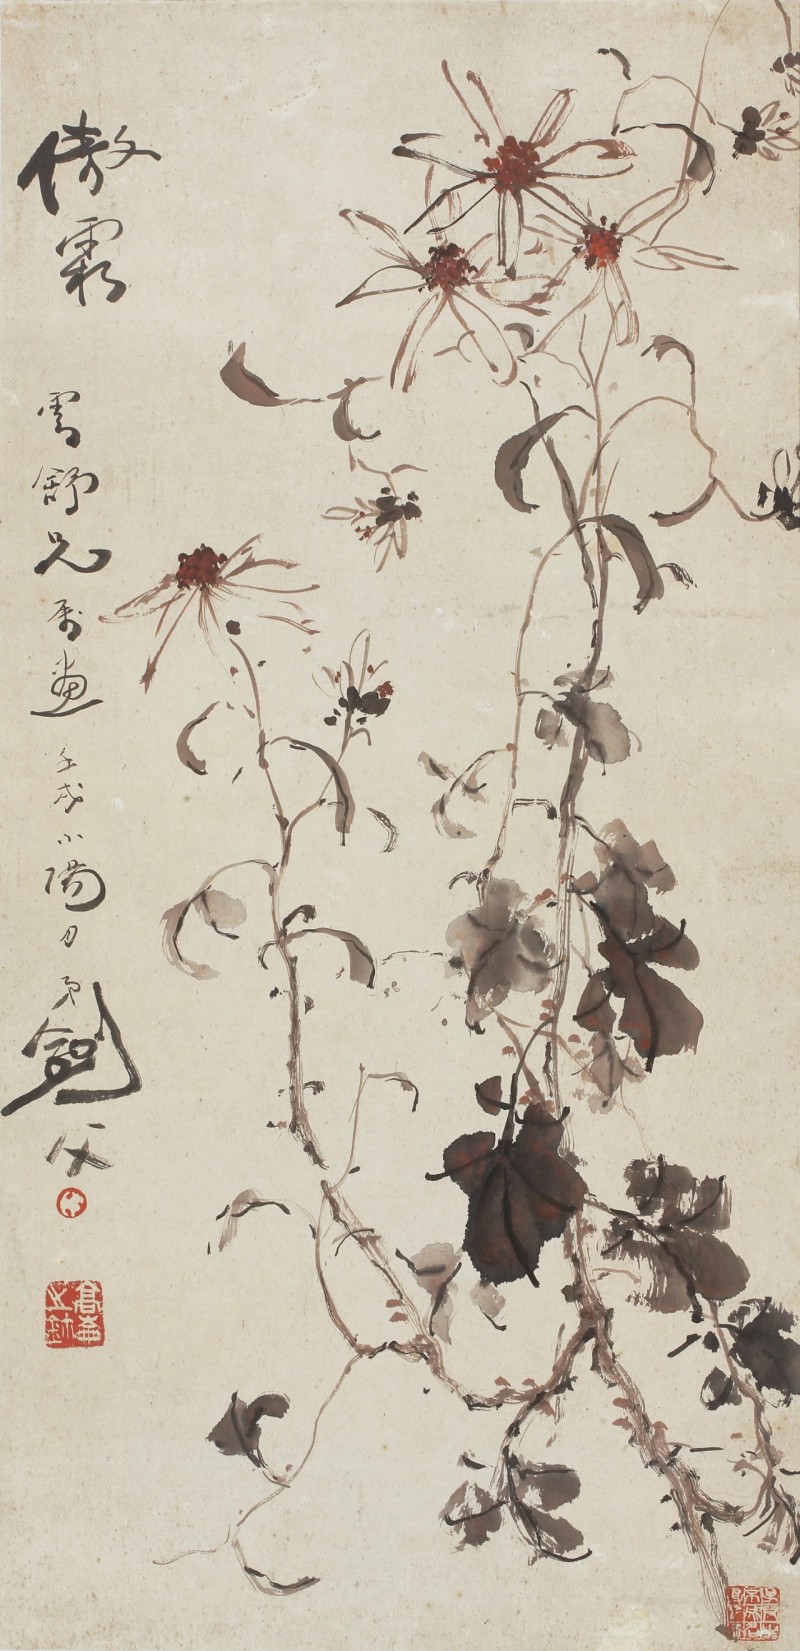 傲霜
雪舒兄屬畫 壬戌小陽月弟劍父